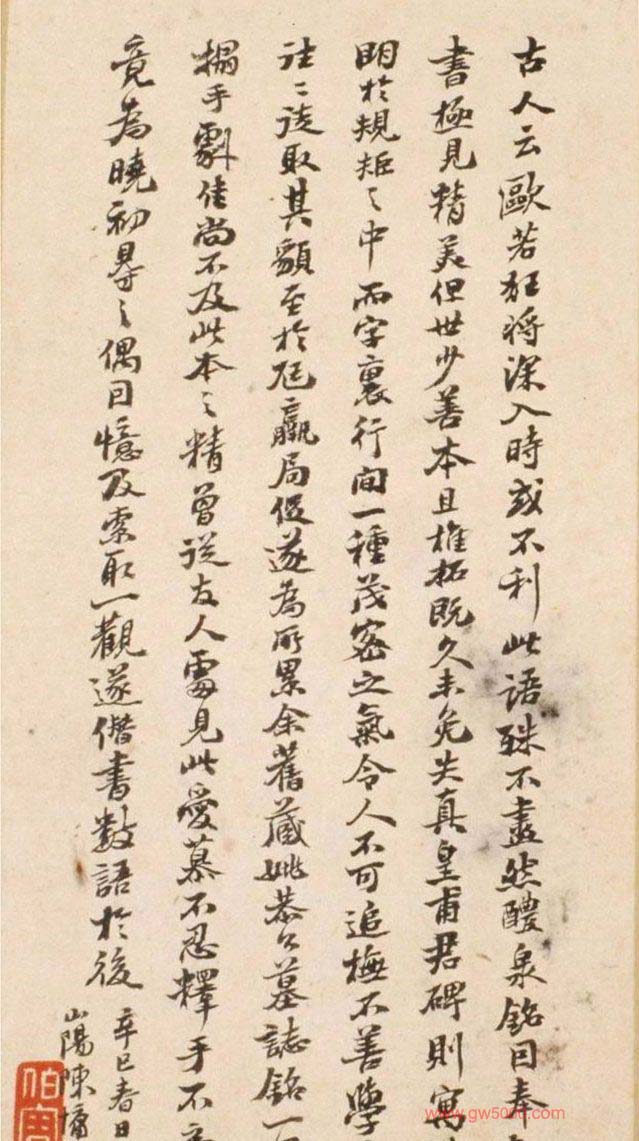 古人云歐若狂將深入時或不利此語殊不盡然醴泉銘因奉
書極見精美但世少善本且椎拓既久未免失真皇甫君碑則寓
明於規矩之中而字裏行间一種茂密之氣令人不可追橅不善學
往〻徒取其貌至於尫羸局促遂為所累余舊藏姚恭公墓誌銘一
搨手劇佳尚不及此本之精曾從友人處見此愛慕不忍釋手不
竟為曉初得之偶回憶及索取一觀遂僭書數語於後
辛巳春日
山陽陳
伯
www.gw5000.com